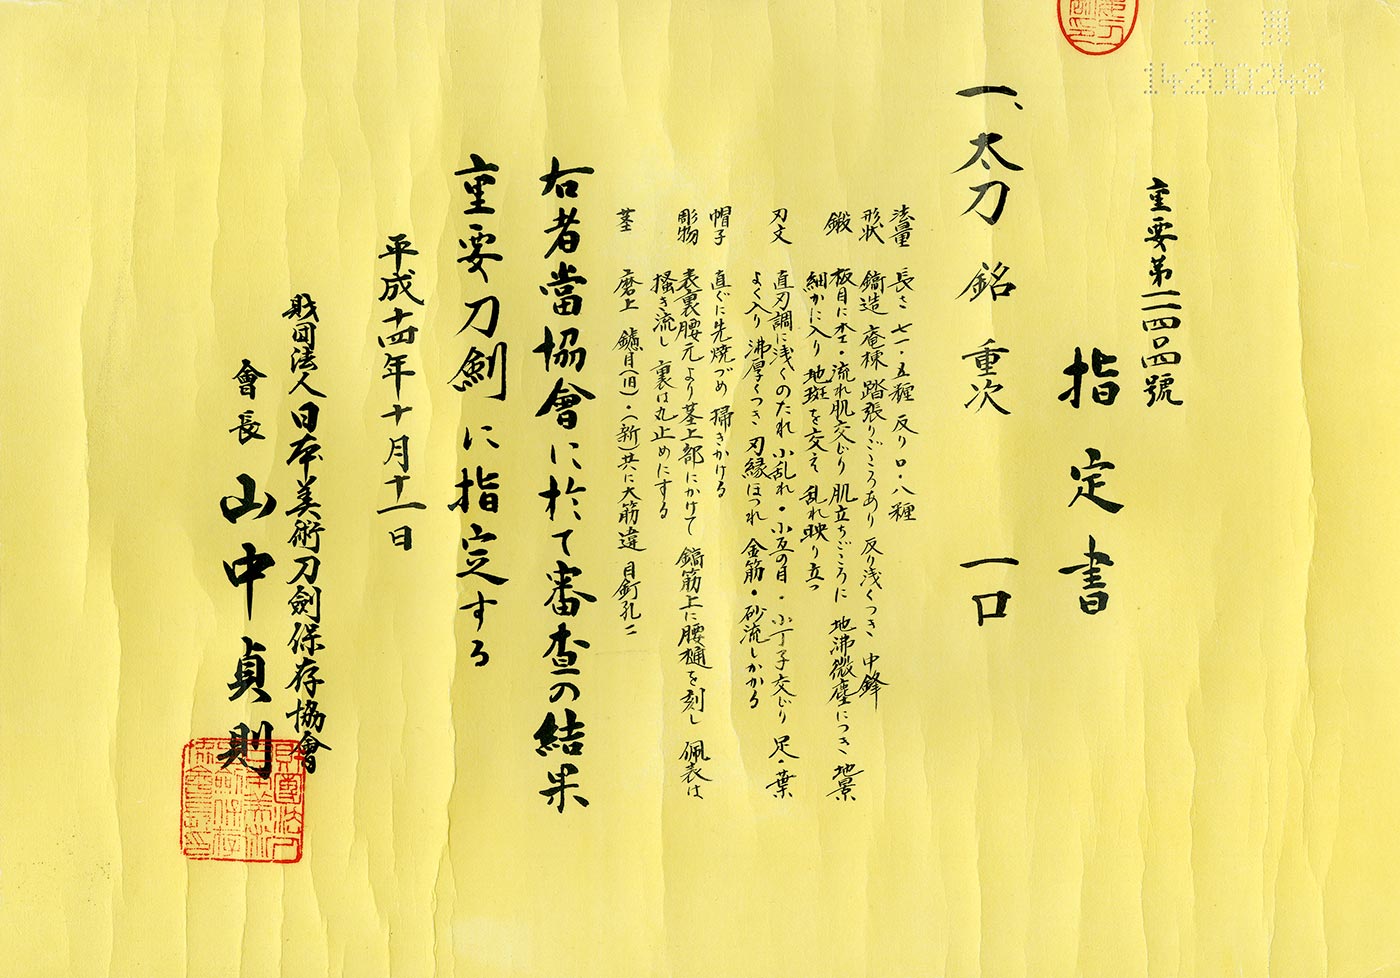 14200248
重要第一一四〇四號
指定書
一、太刀 銘 重次 一口
法量 長さ 七一・五糎 反り 〇・八糎
形状 鎬造 庵棟 踏張りごころあり 反り浅くつき 中鋒
鍛 板目に杢・流れ肌交じり 肌立ちごころに 地沸微塵につき 地景
細かに入り 地斑を交え 乱れ映り立つ
刃文 直刃調に浅くのたれ 小乱れ・小互の目・小丁子交じり 足・葉
よく入り 沸厚くつき 刃縁ほつれ 金筋・砂流しかかる
帽子 直ぐに先焼づめ 掃きかける
彫物 表裏腰元より茎上部にかけて 鎬筋上に腰樋を刻し 佩表は
掻き流し 裏は丸止めにする
茎 磨上 鑢目(旧)・(新)共に大筋違 目釘孔二
右者當協會に於て審査の結果
重要刀劍に指定する
平成十四年十月十一日
財団法人日本美術刀劍保存協會
會長 山中貞則